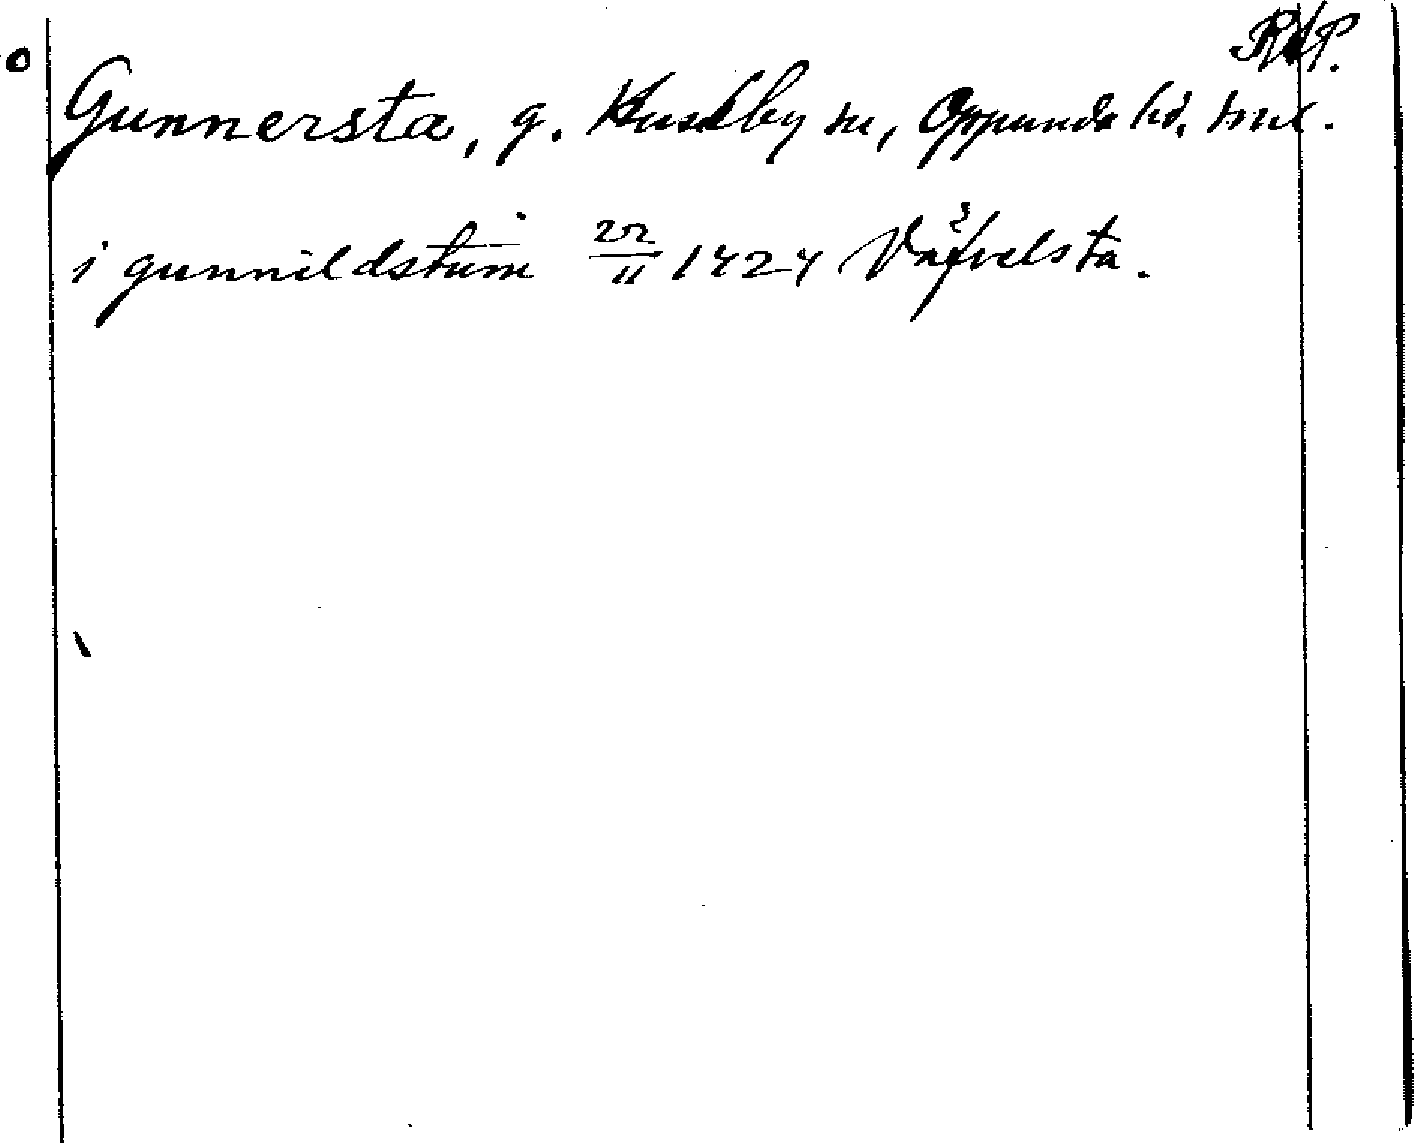 RAP.
Gunnersta, g. Husby sn, Oppunda hd, Sml.
i gunnildstum 22/11 1424 Väfvelsta.